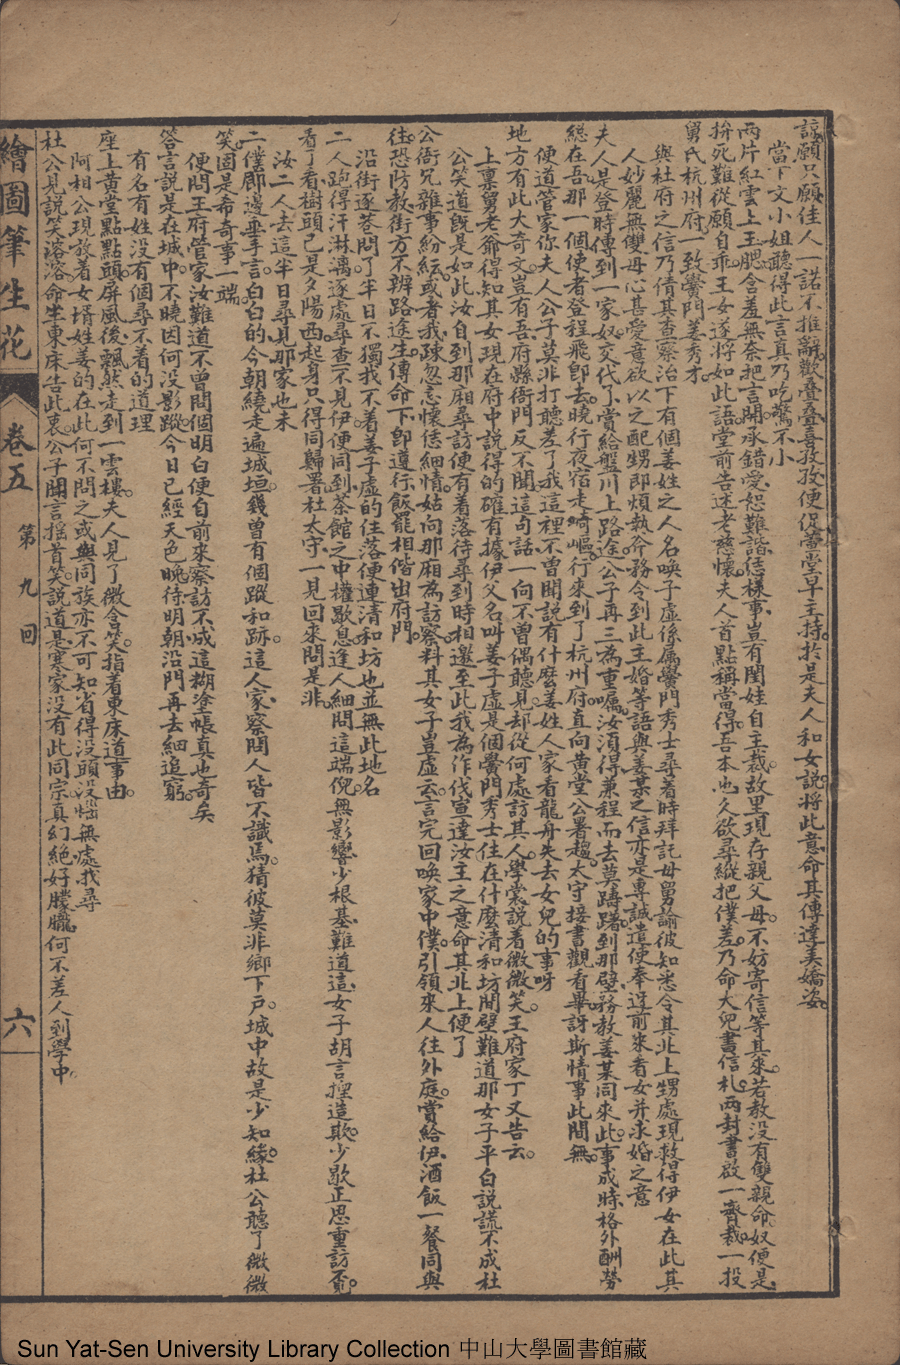 諒願只願佳人一諾不推辭歡疊疊喜孜孜便促萱堂早主持於是夫人和女說將此意命其傳達美嬌姿
當下文小姐聽得此言真乃吃驚不小
兩片紅雲上玉腮含羞無奈把言開承錯愛恕難諧恁樣事豈有閨娃自主裁故里現存親父母不妨寄信等其來若教沒有雙親命奴便是
拚死難從願自乖王女遂將如此語堂前告述老慈懷夫人首點稱當得吾本也久欲尋縱把僕差乃命大兒書信札兩封書啟一齊裁一投
舅氏杭州府一致黌門姜秀才
與杜府之信乃倩其查察治下有個姜姓之人名喚子虛係屬黌門秀士尋着時拜託母舅諭彼知悉令其北上甥處現救得伊女在此其
人妙麗無雙母心甚愛意欲以之配甥即煩執斧務令到此主婚等語與姜某之信亦是專誠遣使奉迓前來看女并求婚之意
夫人是登時傳到一家奴交代了賞給盤川上路途公子再三為重囑汝須得兼程而去莫躊躇到那壁務教姜某同來此事成時格外酬勞
總在吾那一個使者登程飛卽去曉行夜宿走崎嶇行來到了杭州府直向黄堂公署趨太守接書觀看畢訝斯情事此間無
便道管家你夫人公子莫非打聽差了我這裡不曾聞說有什麽姜姓人家看龍舟失去女兒的事呀
地方有此大奇文豈有吾府縣衙門反不聞這句話一向不曾偶聽見却從何處訪其人學裳說着微微笑王府家丁又告云
上禀舅老爺得知其女現在府中說得的確有據伊父名叫姜子虛是個黌門秀士住在什麽清和坊間壁難道那女子平白說謊不成杜
公笑道旣是如此汝自到那廂尋訪便有着落待尋到時相邀至此我為作伐宣達汝主之意命其北上便了
公衙冗雜事紛紜或者我疎忽忘懷恁細情姑向那厢為訪察料其女子豈虛云言完回喚家中僕引領來人往外庭賞給伊酒飯一餐同與
往恐防教街方不辨路途生傳命下卽遵行飯罷相偕出府門
沿街逐巷問了半日不獨找不着姜子虛的住落便連清和坊也並無此地名
二人跑得汗淋漓逐處尋查不見伊便同到茶館之中權歇息逢人細問這端倪無影響少根基難道這女子胡言揑造欺少歇正思重訪覔
看了看樹頭已是夕陽西起身只得同歸署杜太守一見回來問是非
汝二人去這半日尋見那家也未
二僕卽邊垂手言白白的今朝繞走遍城垣幾曾有個蹤和跡這人家察問人皆不識焉猜彼莫非鄉下戸城中故是少知緣杜公聽了微微
笑固是希奇事一端
便問王府管家汝難道不曾問個明白便自前來察訪不成這糊塗帳真也奇矣
答言說是在城中不曉因何没影蹤今日已經天色晚待明朝沿門再去細追窮
有名有姓没有個尋不着的道理
座上黄堂點點頭屏風後飄然走到一雲樓夫人見了微含笑指着東床道事由
阿相公現放着女壻姓姜的在此何不問之或與同族亦不可知省得没頭没惱無處找尋
杜公見說笑溶溶命坐東床告此衷公子聞言摇首笑說道是寒家没有此同宗真幻絶好朦朧何不差人到學中
繪圖筆生花
卷五
第九回
六
Sun Yat-Sen University Library Collection 中山大學圖書館藏